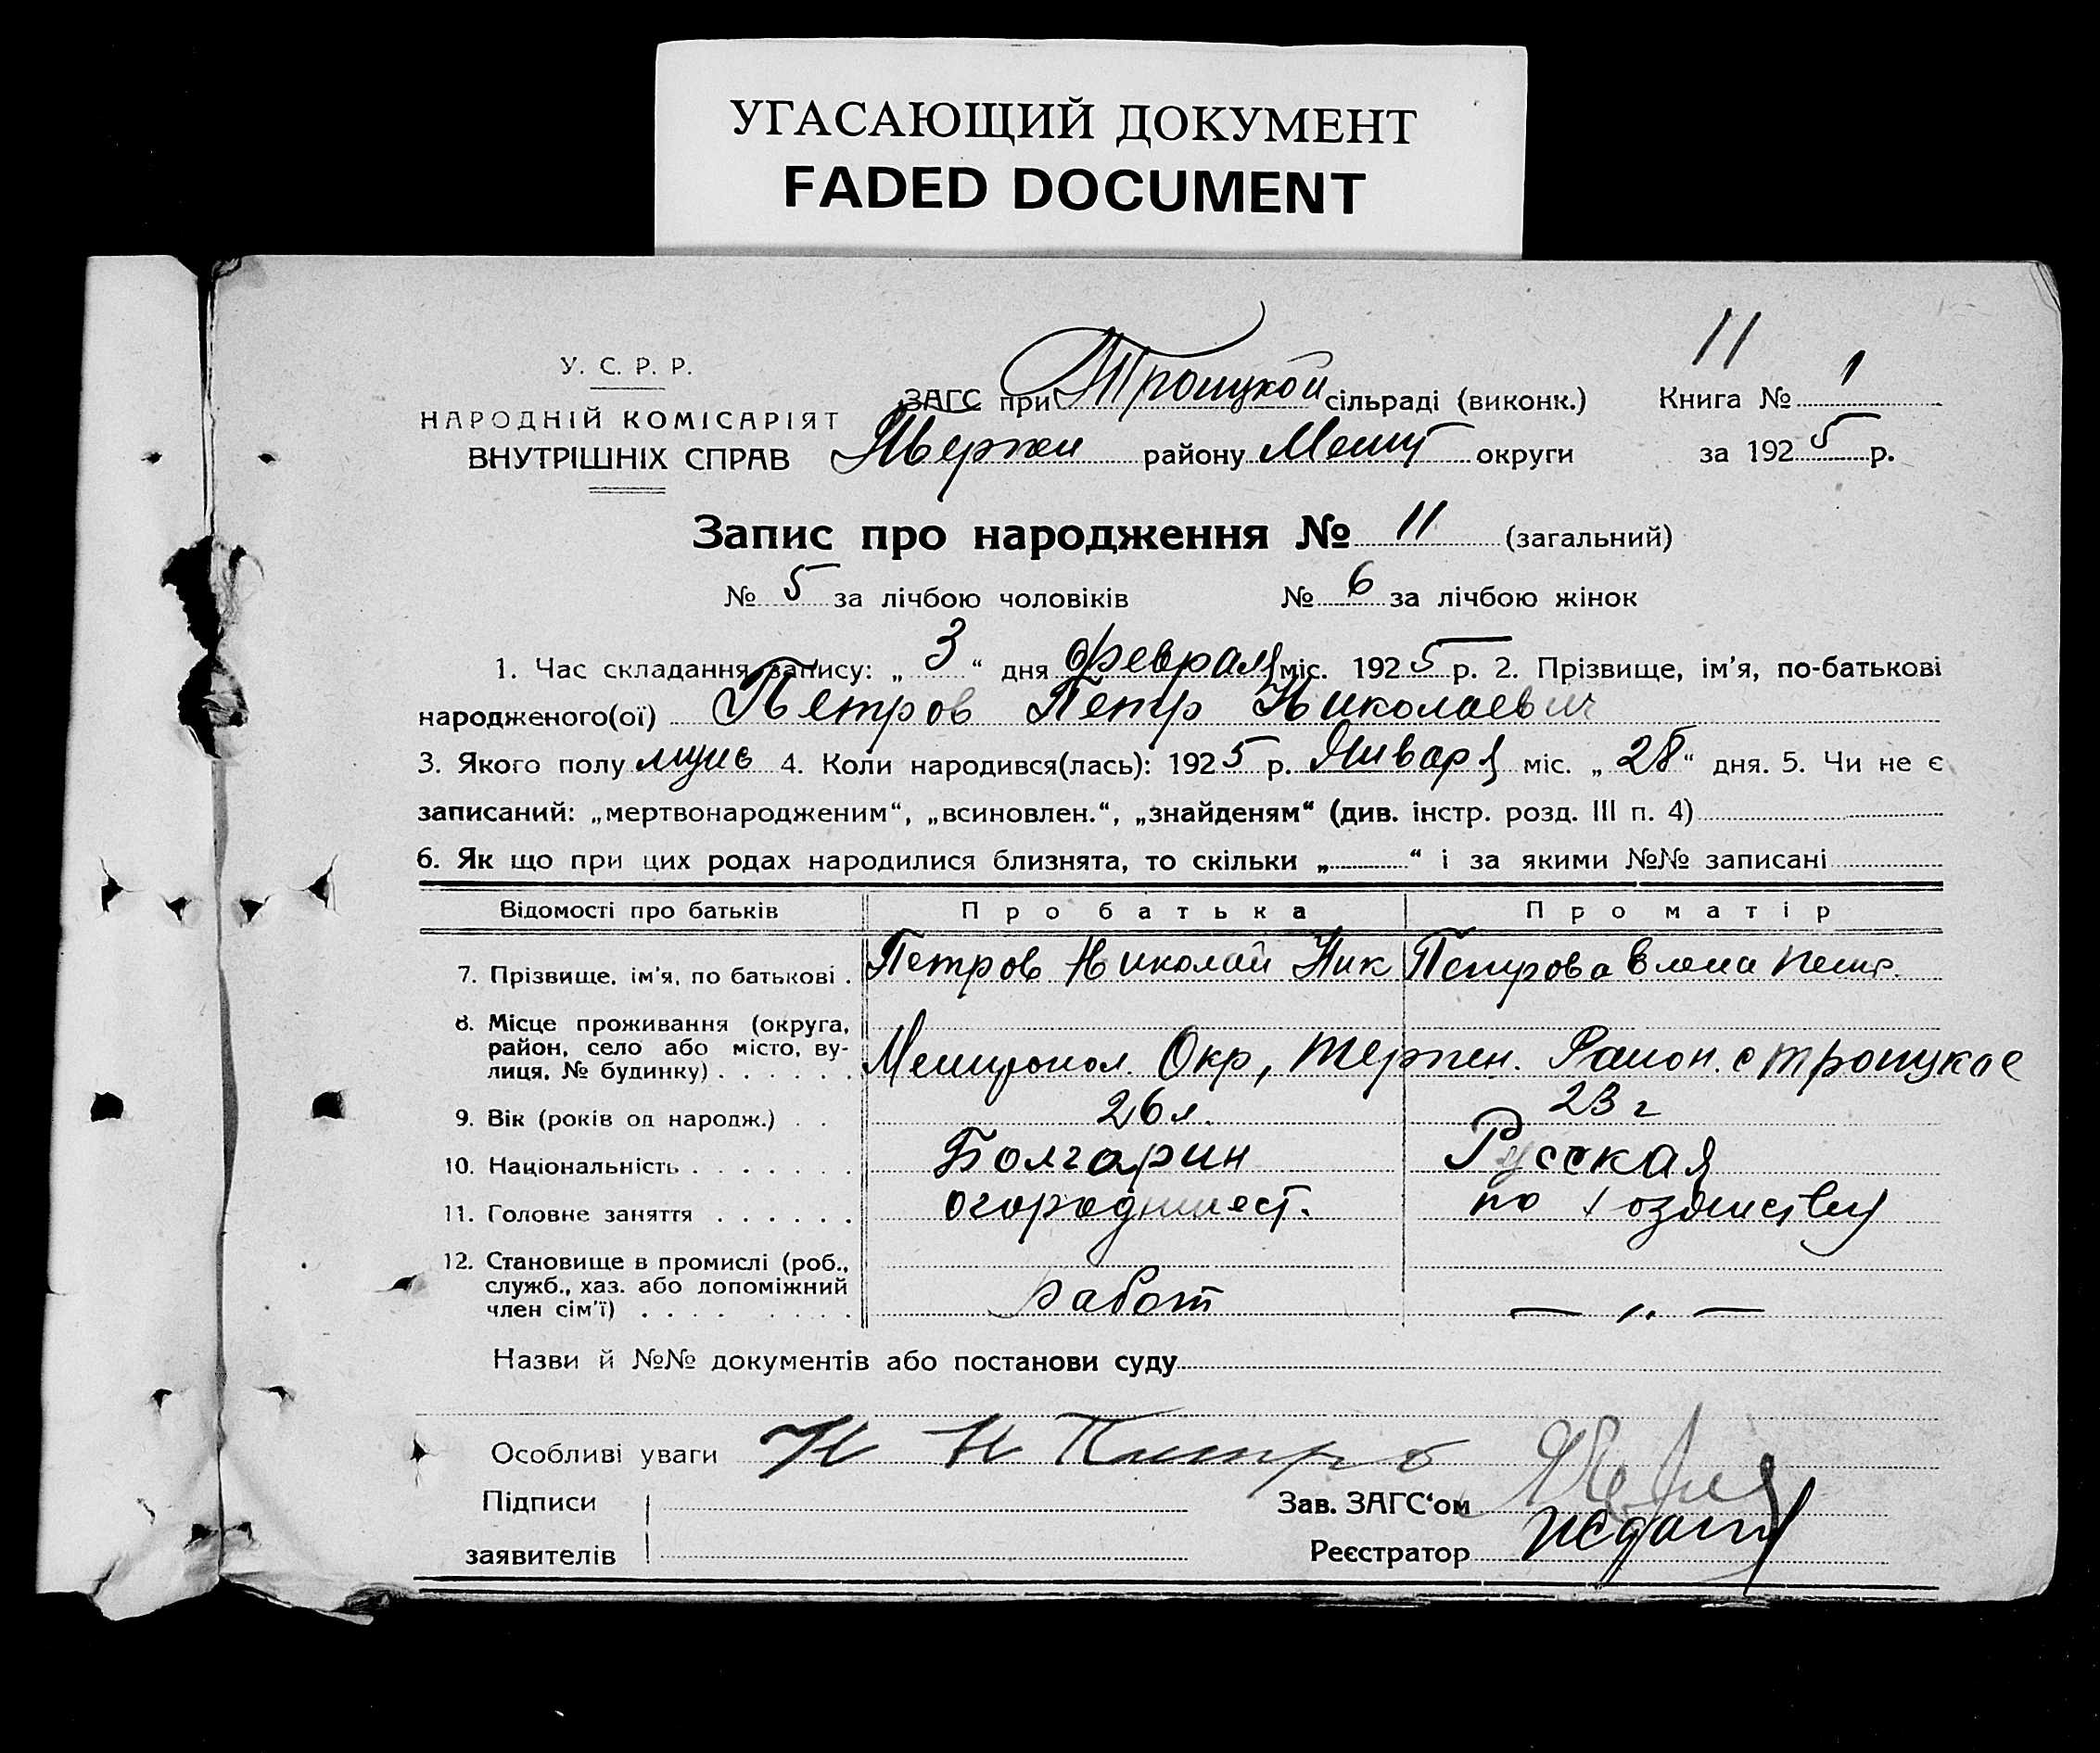 УГАСАЮЩИЙ ДОКУМЕНТ
FADED DOCUMENT
11
У. С. Р. Р.
НАРОДНІЙ КОМІСАРІЯТ
ВНУТРІШНІХ СПРАВ
ЗАГС при Троицкой сільраді (виконк.) Книга № 1
району Мелит округи за 1925 р.
Запис про народження № 11 (загальний)
№ 5 за лічбою чоловіків № 6 за лічбою жінок
1. Час складання запису: „ 3 “ дня февраля міс. 1925 р. 2. Прізвище, ім’я, по-батькові
народженого(ої) Петров Петр Николаевич
3. Якого полу муж 4. Коли народився(лась): 1925 р. Января міс. „ 28 “ дня. 5. Чи не є
записаний: „мертвонародженим“, „всиновлен.“, „знайденям“ (див. інстр. розд. III п. 4)
6. Як що при цих родах народилися близнята, то скільки „ “ і за якими №№ записані
Відомості про батьків Про батька Про матір
7. Прізвище, ім’я, по батькові . Петров Николай Ник Петрова Елена Петр.
8. Місце проживання (округа,
район, село або місто, ву-
лиця, № будинку) . . . . . . Мелитопол. Окр, Терпен. Район. с Троицкое
9. Вік (років од народж.) . . 26 л. 23 г
10. Національність . . . . . . . Болгарин Русская
11. Головне заняття . . . . . . огороднист. по хозяиству
12. Становище в промислі (роб.,
служб., хаз. або допоміжний
член сім’ї) . . . . . . . . работ — „ —
Назви й №№ документів або постанови суду
Особливі уваги Н Н Петро
Підписи
заявителів
Зав. ЗАГС‘ом
Реєстратор